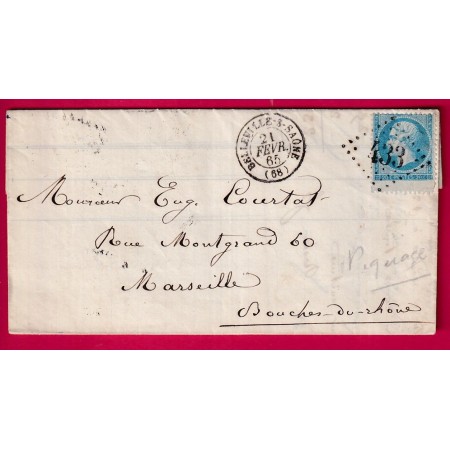 BELLEVILLE-S-SAÔNE
21
FEVR.
65
(68)
433
Monsieur Eug. Courtat
Rue Montgrand 60
Marseille
Bouches-du-rhône
Piquage